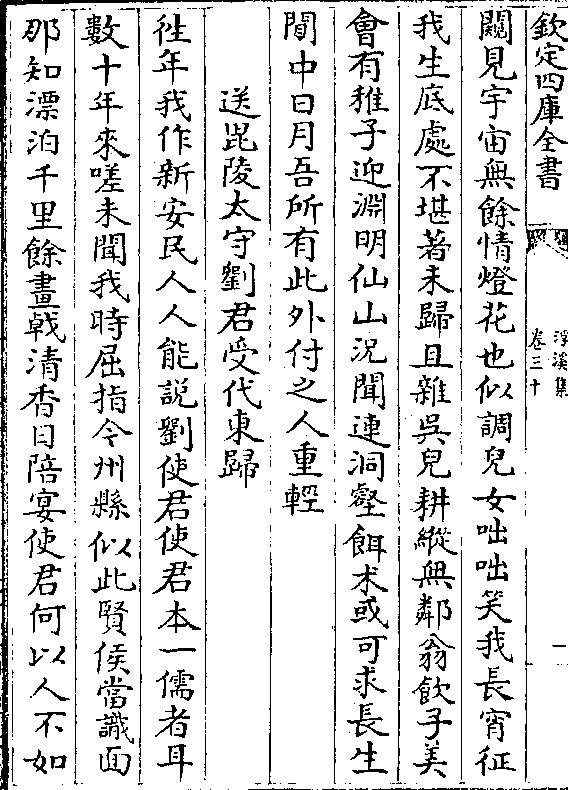 欽定四庫全書
浮溪集
卷三十
一
闕見宇宙無餘情燈花也似調兒女咄咄笑我長宵征
我生底處不堪著未歸且雜吳兒耕縱無鄰翁飲子美
會有稚子迎淵明仙山況聞連洞壑餌朮或可求長生
閒中日月吾所有此外付之人重輕
送毘陵太守劉君受代東歸
徃年我作新安民人人能説劉使君使君本一儒者耳
數十年來嗟未聞我時屈指令州縣似此賢侯當識面
那知漂泊千里餘畫戟清香日陪宴使君何以人不如